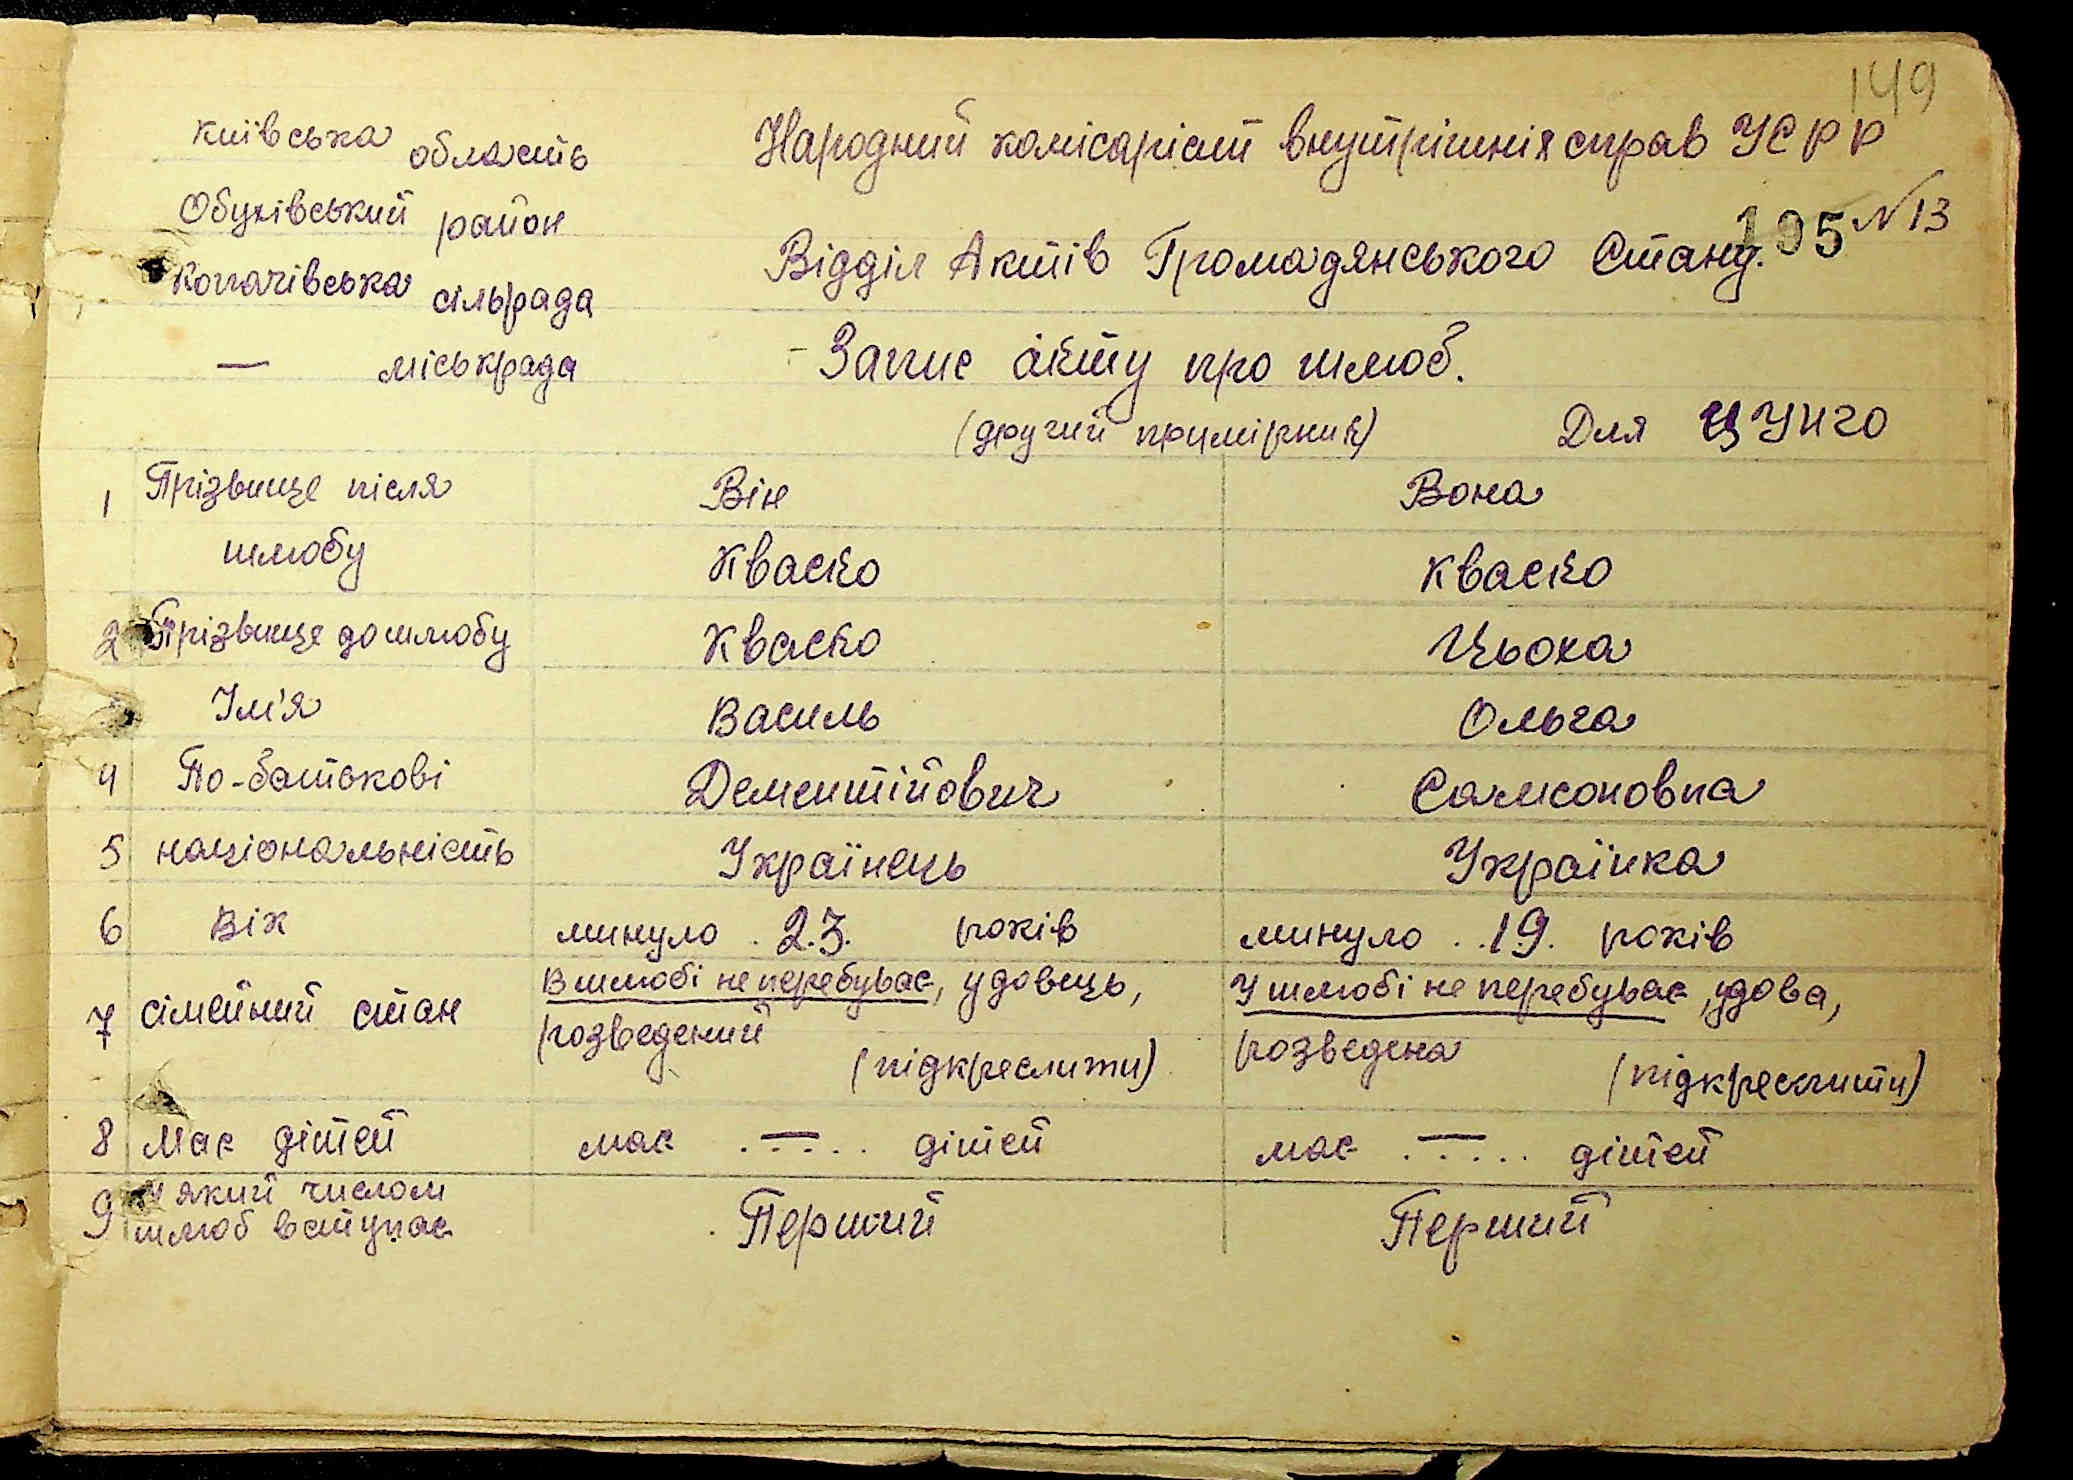 149
Київська область
Народний комісаріат внутрішніх справ УСРР
Обухівський район
195 N 13
Копачівська сільрада
Відділ Актів Громадянського Стану.
— міськрада
Запис акту про шлюб.
(другий примірник) Для ЦУНГО
1 Прізвище після шлюбу
Він
Вона
Кваско
Кваско
2 Прізвище до шлюбу Кваско Цьоха
Ім'я Василь Ольга
4 По-батькові Дементійович Самсоновна
5 національність Українець Українка
6 Вік минуло . 23. років минуло . . 19. років
7 сімейний стан
В шлюбі не перебуває, удовець,
розведений
(підкреслити)
У шлюбі не перебуває, удова,
розведена
(підкреслити)
8 Має дітей має — дітей має — дітей
9 У який числом
шлюб вступає
Перший Перший